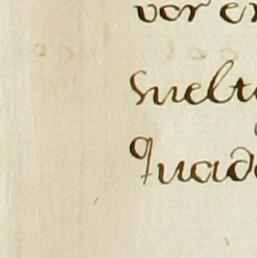 vor er
Suelt
Quad